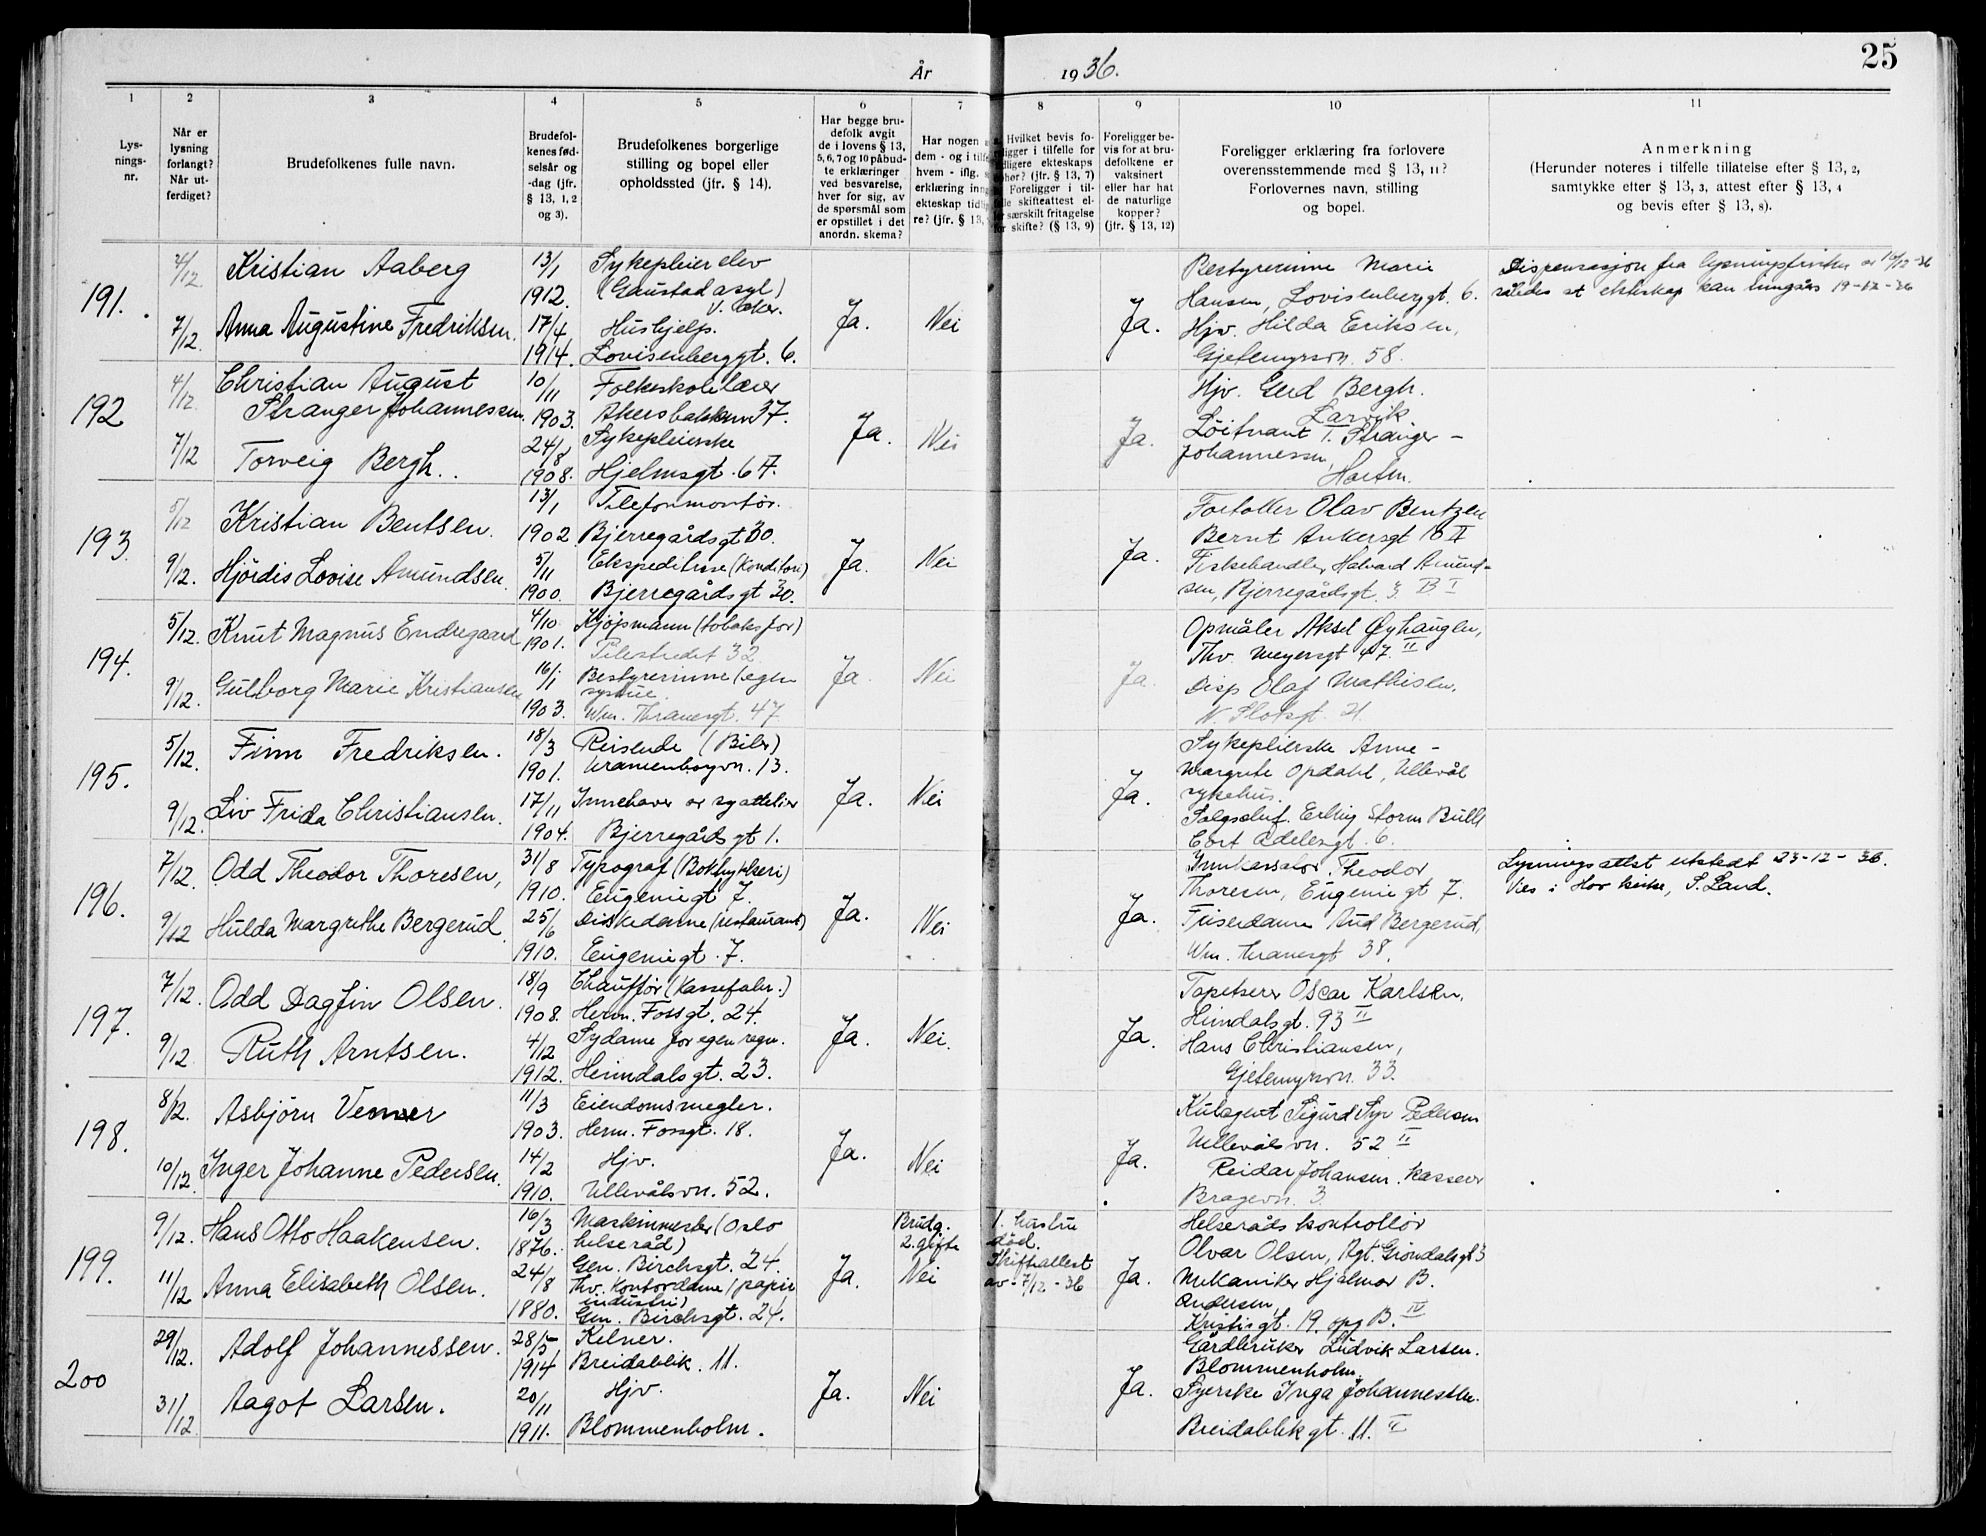 År 1936.
25
1 2 3 4 5 6 7 8 9 10 11
Lys-
nings-
nr.
Når er
lysning
forlangt?
Når ut-
ferdiget?
Brudefolkenes fulle navn.
Brudefol-
kenes fød-
selsår og
-dag (jfr.
§ 13, 1, 2
og 3).
Brudefolkenes borgerlige
stilling og bopel eller
opholdssted (jfr. § 14).
Har begge bru-
defolk avgit
de i lovens § 13,
5, 6, 7 og 10 påbud-
te erklæringer
ved besvarelse,
hver for sig, av
de spørsmål som
er opstillet i det
anordn. skema?
Har nogen
dem - og i tilf
hvem - iflg.
erklæring inn
ekteskap tidl
re? (jfr. § 13,
Hvilket bevis fo-
religger i tilfelle for
tidligere ekteskaps
ophør? (jfr. § 13, 7)
Foreligger i til-
felle skifteattest el-
ler særskilt fritagelse
for skifte? (§ 13, 9)
Foreligger be-
vis for at bru-
defolkene er
vaksinert
eller har hat
de naturlige
kopper?
(jfr. § 13, 12)
Foreligger erklæring fra forlovere
overensstemmende med § 13, 11?
Forlovernes navn, stilling
og bopel.
Anmerkning
(Herunder noteres i tilfelle tillatelse efter § 13, 2,
samtykke efter § 13, 3, attest efter § 13, 4
og bevis efter § 13, 8).
191.
4/12
Kristian Aaberg
13/1
1912.
Sykepleierelev
(Gaustad asyl)
V. Aker.
7/12.
Anna Augustine Fredriksen.
17/4
1914.
Hushjelp.
Lovisenberggt. 6.
Ja.
Nei
Ja.
Bestyrerinne Marie
Hansen, Lovisenberggt. 6.
Hjv. Hilda Eriksen,
Gjetemyrsvn. 58.
Dispensasjon fra lysningsfristen av 10/12-36
således at ekteskap kan inngåes 19-12-36
192
4/12.
Christian August
Stranger Johannessen.
10/11
1903.
Folkeskolelærer
Akersbakken 37.
7/12
Torveig Bergh.
24/8
1908.
Sykepleierske
Hjelmsgt. 6 A.
Ja.
Nei
Ja.
Hjv. Gerd Bergh.
Larvik
Løitnant T. Stranger-
Johannessen,
Horten.
193.
5/12
Kristian Bentsen.
13/1
1902
Telefonmontør.
Bjerregårdsgt 30.
9/12.
Hjördis Lovise Amundsen.
5/11
1900.
Ekspeditrise (Konditori)
Bjerregårdsgt 30.
Ja.
Nei
Ja.
Fortoller Olav Bentzen
Bernt Ankersgt 10 II
Fiskehandler Halvard Amund-
sen, Bjerregårdsgt. 3 B I
194.
5/12.
Knut Magnus Endregaard
4/10
1901.
Kjøpmann (tobaksforr)
Pilestredet 32
9/12.
Gulborg Marie Kristiansen
16/1
1903.
Bestyrerinne (egen
systue.
Wm. Thranesgt. 47
Ja.
Nei
Ja.
Opmåler Aksel Øyhaugen,
Thv. Meyersgt 47. II
Disp Olaf Mathisen.
N. Slotsgt. 21.
195.
5/12.
Finn Fredriksen.
18/3
1901.
Reisende (Biler)
Uranienborgvn. 13.
9/12.
Liv Frida Christiansen.
17/11
1904.
Innehaver av syattelier
Bjerregårdsgt 1.
Ja.
Nei
Ja.
Sykepleierske Anne-
Margrete Opdahl, Ullevål
sykehus.
Salgssjef. Erling Storm Bull
Cort Adelersgt. 6.
196.
7/12.
Odd Theodor Thoresen,
31/8
1910.
Typograf (Boktrykkeri)
Eugeniegt 7.
9/12
Hulda Margrethe Bergerud.
25/6
1910.
Diskedame (restaurant)
Eugeniegt. 7.
Ja.
Nei
Ja.
Innkassator Theodor
Thoresen, Eugeniegt 7.
Friserdame Aud Bergerud,
Wm. Thranesgt 38.
Lysningsattest utstedt 23-12-36.
Vies i Hov kirke, S. Land.
197.
7/12.
Odd Dagfin Olsen.
18/9
1908.
Chauffør (Kassefabr.)
Herm. Fossgt. 24.
9/12.
Ruth Arntsen.
4/12
1912.
Sydame for egen regn.
Heimdalsgt. 23.
Ja.
Nei.
Ja.
Tapetserer Oscar Karlsen,
Heimdalsgt. 93 II
Hans Christiansen,
Gjetemyrsvn. 33.
198.
8/12.
Asbjörn Venner
11/3
1903.
Eiendomsmegler.
Herm. Fossgt. 18.
10/12.
Inger Johanne Pedersen.
14/2
1910.
Hjv.
Ullevålsvn. 52.
Ja.
Nei
Ja.
Kulagent Sigurd Syr Pedersen
Ullevålsvn. 52 II
Reidar Johansen. Kasserer
Bragevn. 3.
199.
9/12.
Hans Otto Haakensen.
16/3
1876.
Maskinmester (Oslo
helseråd)
Gen. Birchsgt. 24.
11/12
Anna Elisabeth Olsen.
24/8
1880.
Thv. Kontordame (papir
industri)
Gen. Birchsgt. 24.
Ja.
Brudg.
2. gifte
Nei
1. hustru
død.
Skifteattest
av 7/12-36
Ja.
Helseråds kontrollør
Olvar Olsen, Agt. Grøndalsgt 3
Mekaniker Hjalmar B.
Andersen,
Kristisgt. 19. opg B. IV
200
29/12.
Adolf Johannessen.
28/5
1914
Kelner.
Breidablik. 11.
31/12
Aagot Larsen.
20/11
1911.
Hjv.
Blommenholm.
Ja.
Nei
Ja.
Gårdbruker Ludvik Larsen.
Blommenholm.
Syerske Inga Johannessen.
Breidablikgt. 11. II